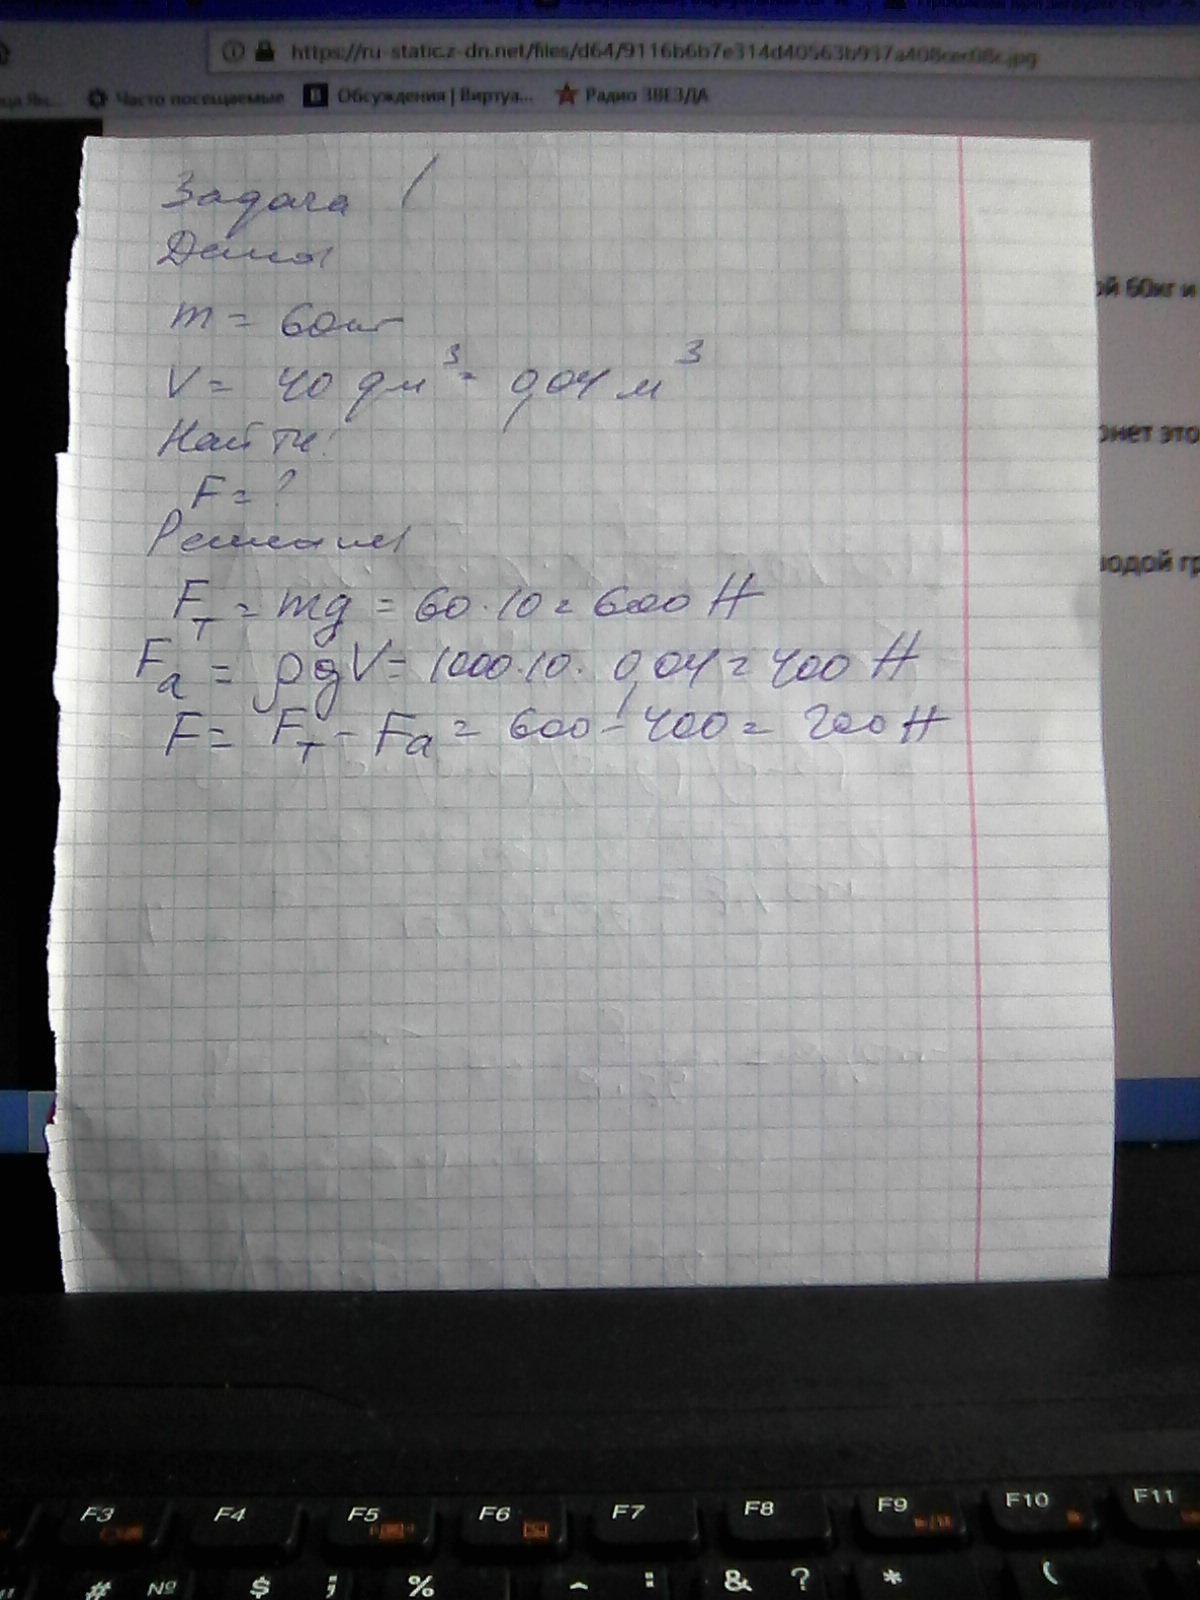 https://ru-static.z-dn.net/files/d64/9116b6b7e314d40563b937a408cec08c.jpg
Часто посещаемые
Обсуждения | Виртуа...
Радио ЗВЕЗДА
Задача 1
Дано
m = 60кг
ой 60кг и
V = 40 дм³ = 0,04 м³
Найти:
онет это
F = ?
Решение
водой гр
Fт = mg = 60·10 = 600 Н
Fа = ρgV = 1000·10·0,04 = 400 Н
F = Fт - Fа = 600 - 400 = 200 Н
F3 F4 F5 F6 F7 F8 F9 F10 F11
# № $ ; % ^ : & ? * (